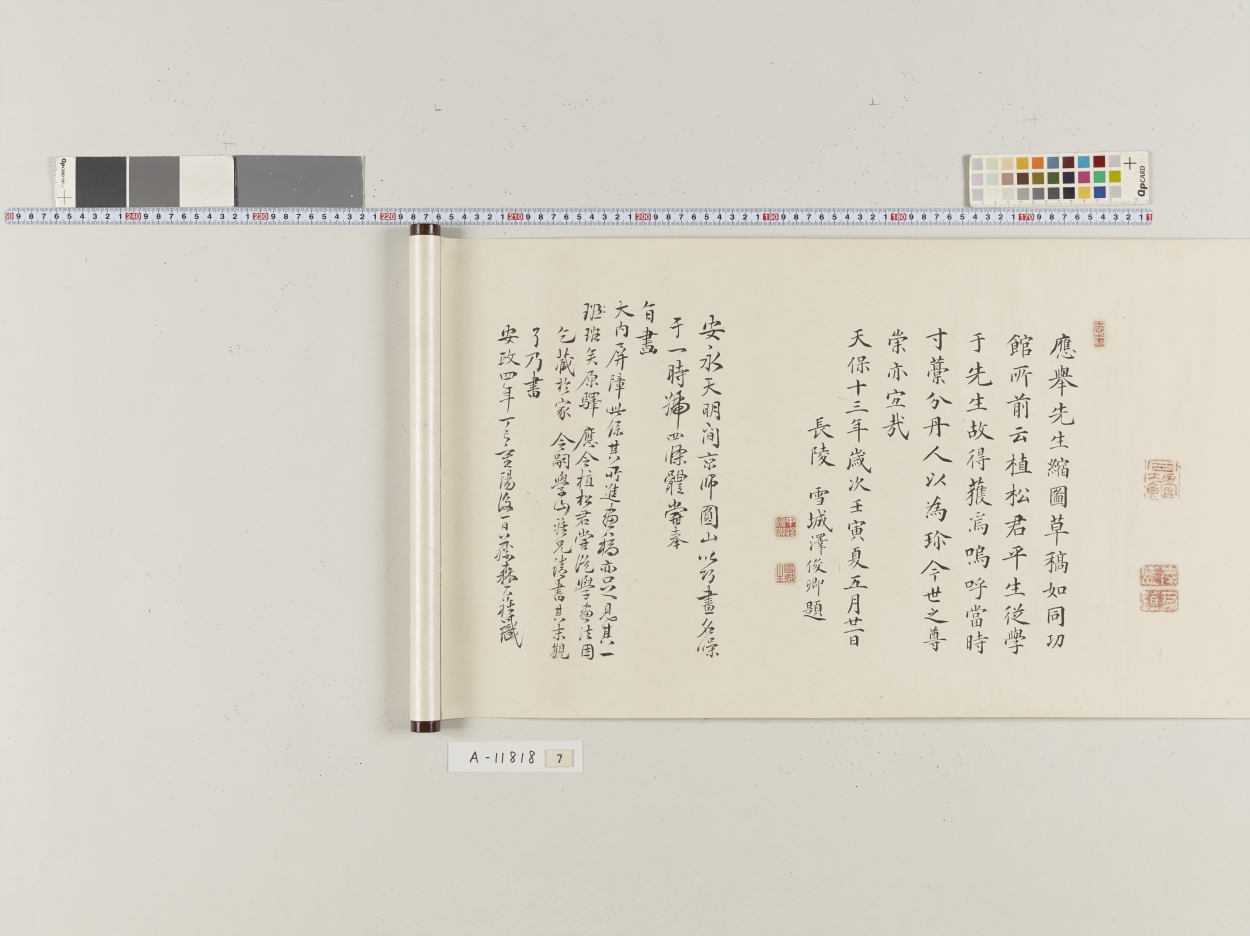 應舉先生縮圖草稿如同功
館所前云植松君平生從學
于先生故得獲焉嗚呼當時
寸藁分丹人以為珍今世之尊
崇亦宜哉
天保十三年歲次壬寅夏五月廿一日
長陵 雪城澤俊卿題
安永天明間京師圓山 畫名噪
于一時 體嘗奉
旨畫
大内屏障 其所進畫稿亦 見其一
斑 矣原驛 應令植松君嘗從學畫法因
乞藏於家 令嗣學山 兄請書其末觀
了乃書
安政四年丁巳重陽後一日
A-11818 7
QPCARD